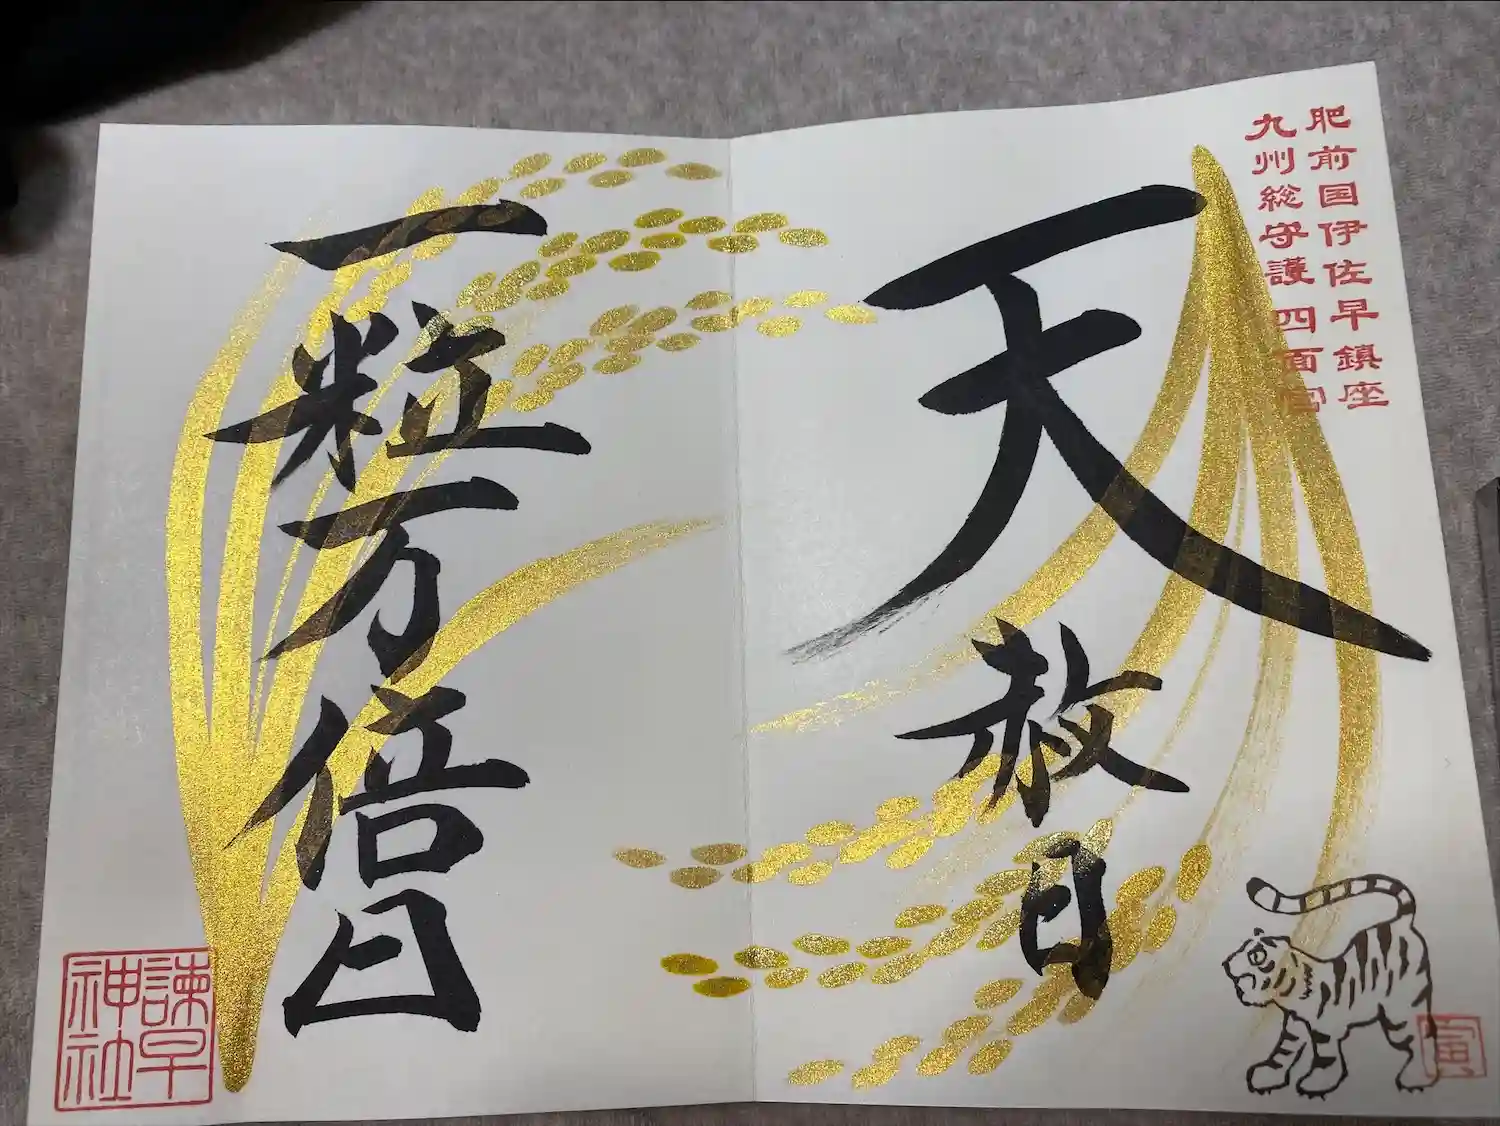 肥前国伊佐早鎮座
九州総守護四面宮
天赦日
寅
一粒万倍日
諫早
神社